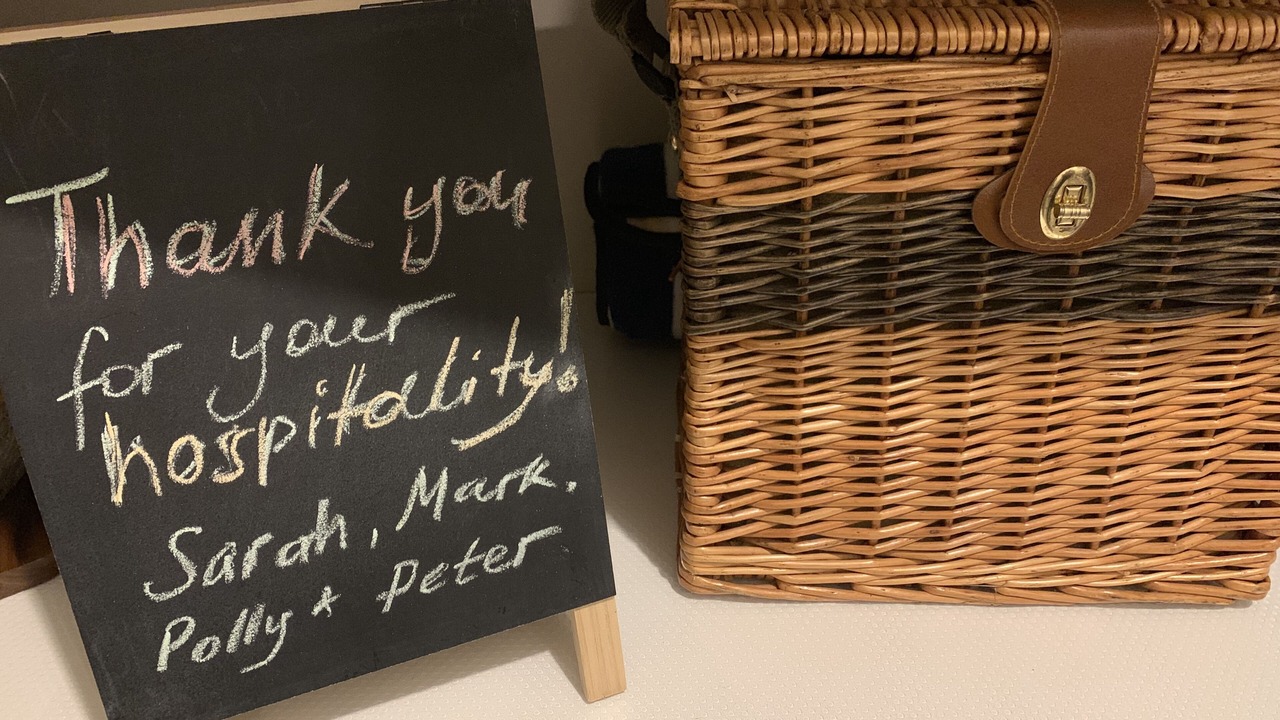 Thank you
for your
hospitality!
Sarah, Mark,
Polly + Peter